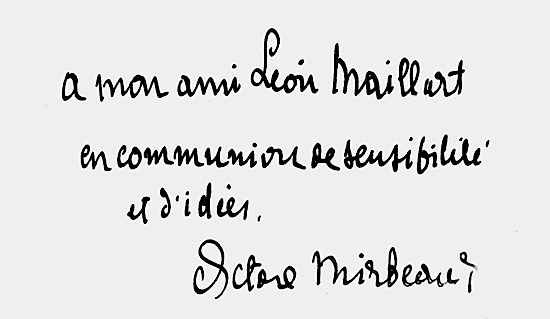 a mon ami Léon Maillart
en communion de sensibilité
et d'idées.
Octave Mirbeau